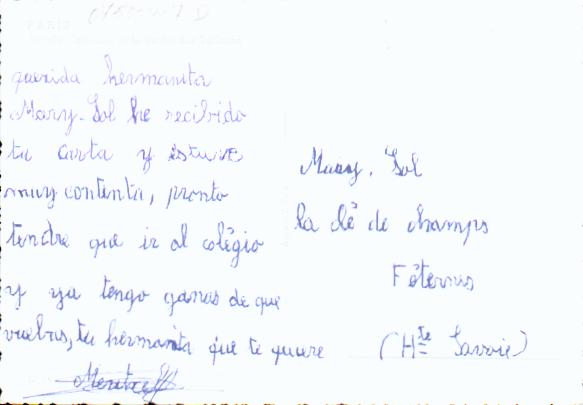 PARIS
querida hermanita
Mary-Sol he recibido
tu carta y estuve
muy contenta, pronto
tendre que ir al colégio
y ya tengo ganas de que
vuelvas, tu hermanita que te quiere
Mary-Sol
la clé de champs
Féternes
(Hte Savoie)